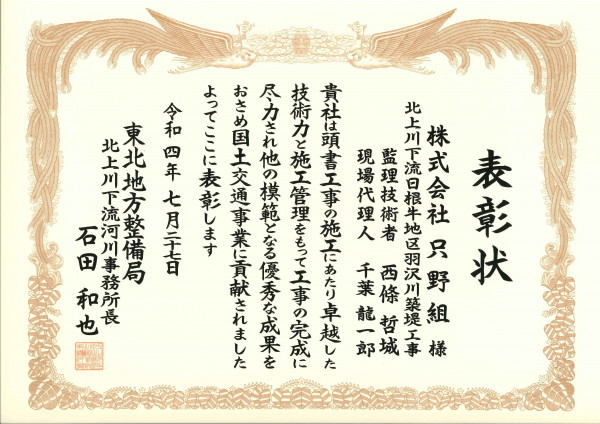 表彰状
株式会社 只野組 様
北上川下流日根牛地区羽沢川築堤工事
監理技術者 西條 哲城
現場代理人 千葉 龍一郎
貴社は頭書工事の施工にあたり卓越した
技術力と施工管理をもって工事の完成に
尽力され他の模範となる優秀な成果を
おさめ国土交通事業に貢献されました
よってここに表彰します
令和四年七月二十七日
東北地方整備局
北上川下流河川事務所長
石田 和也